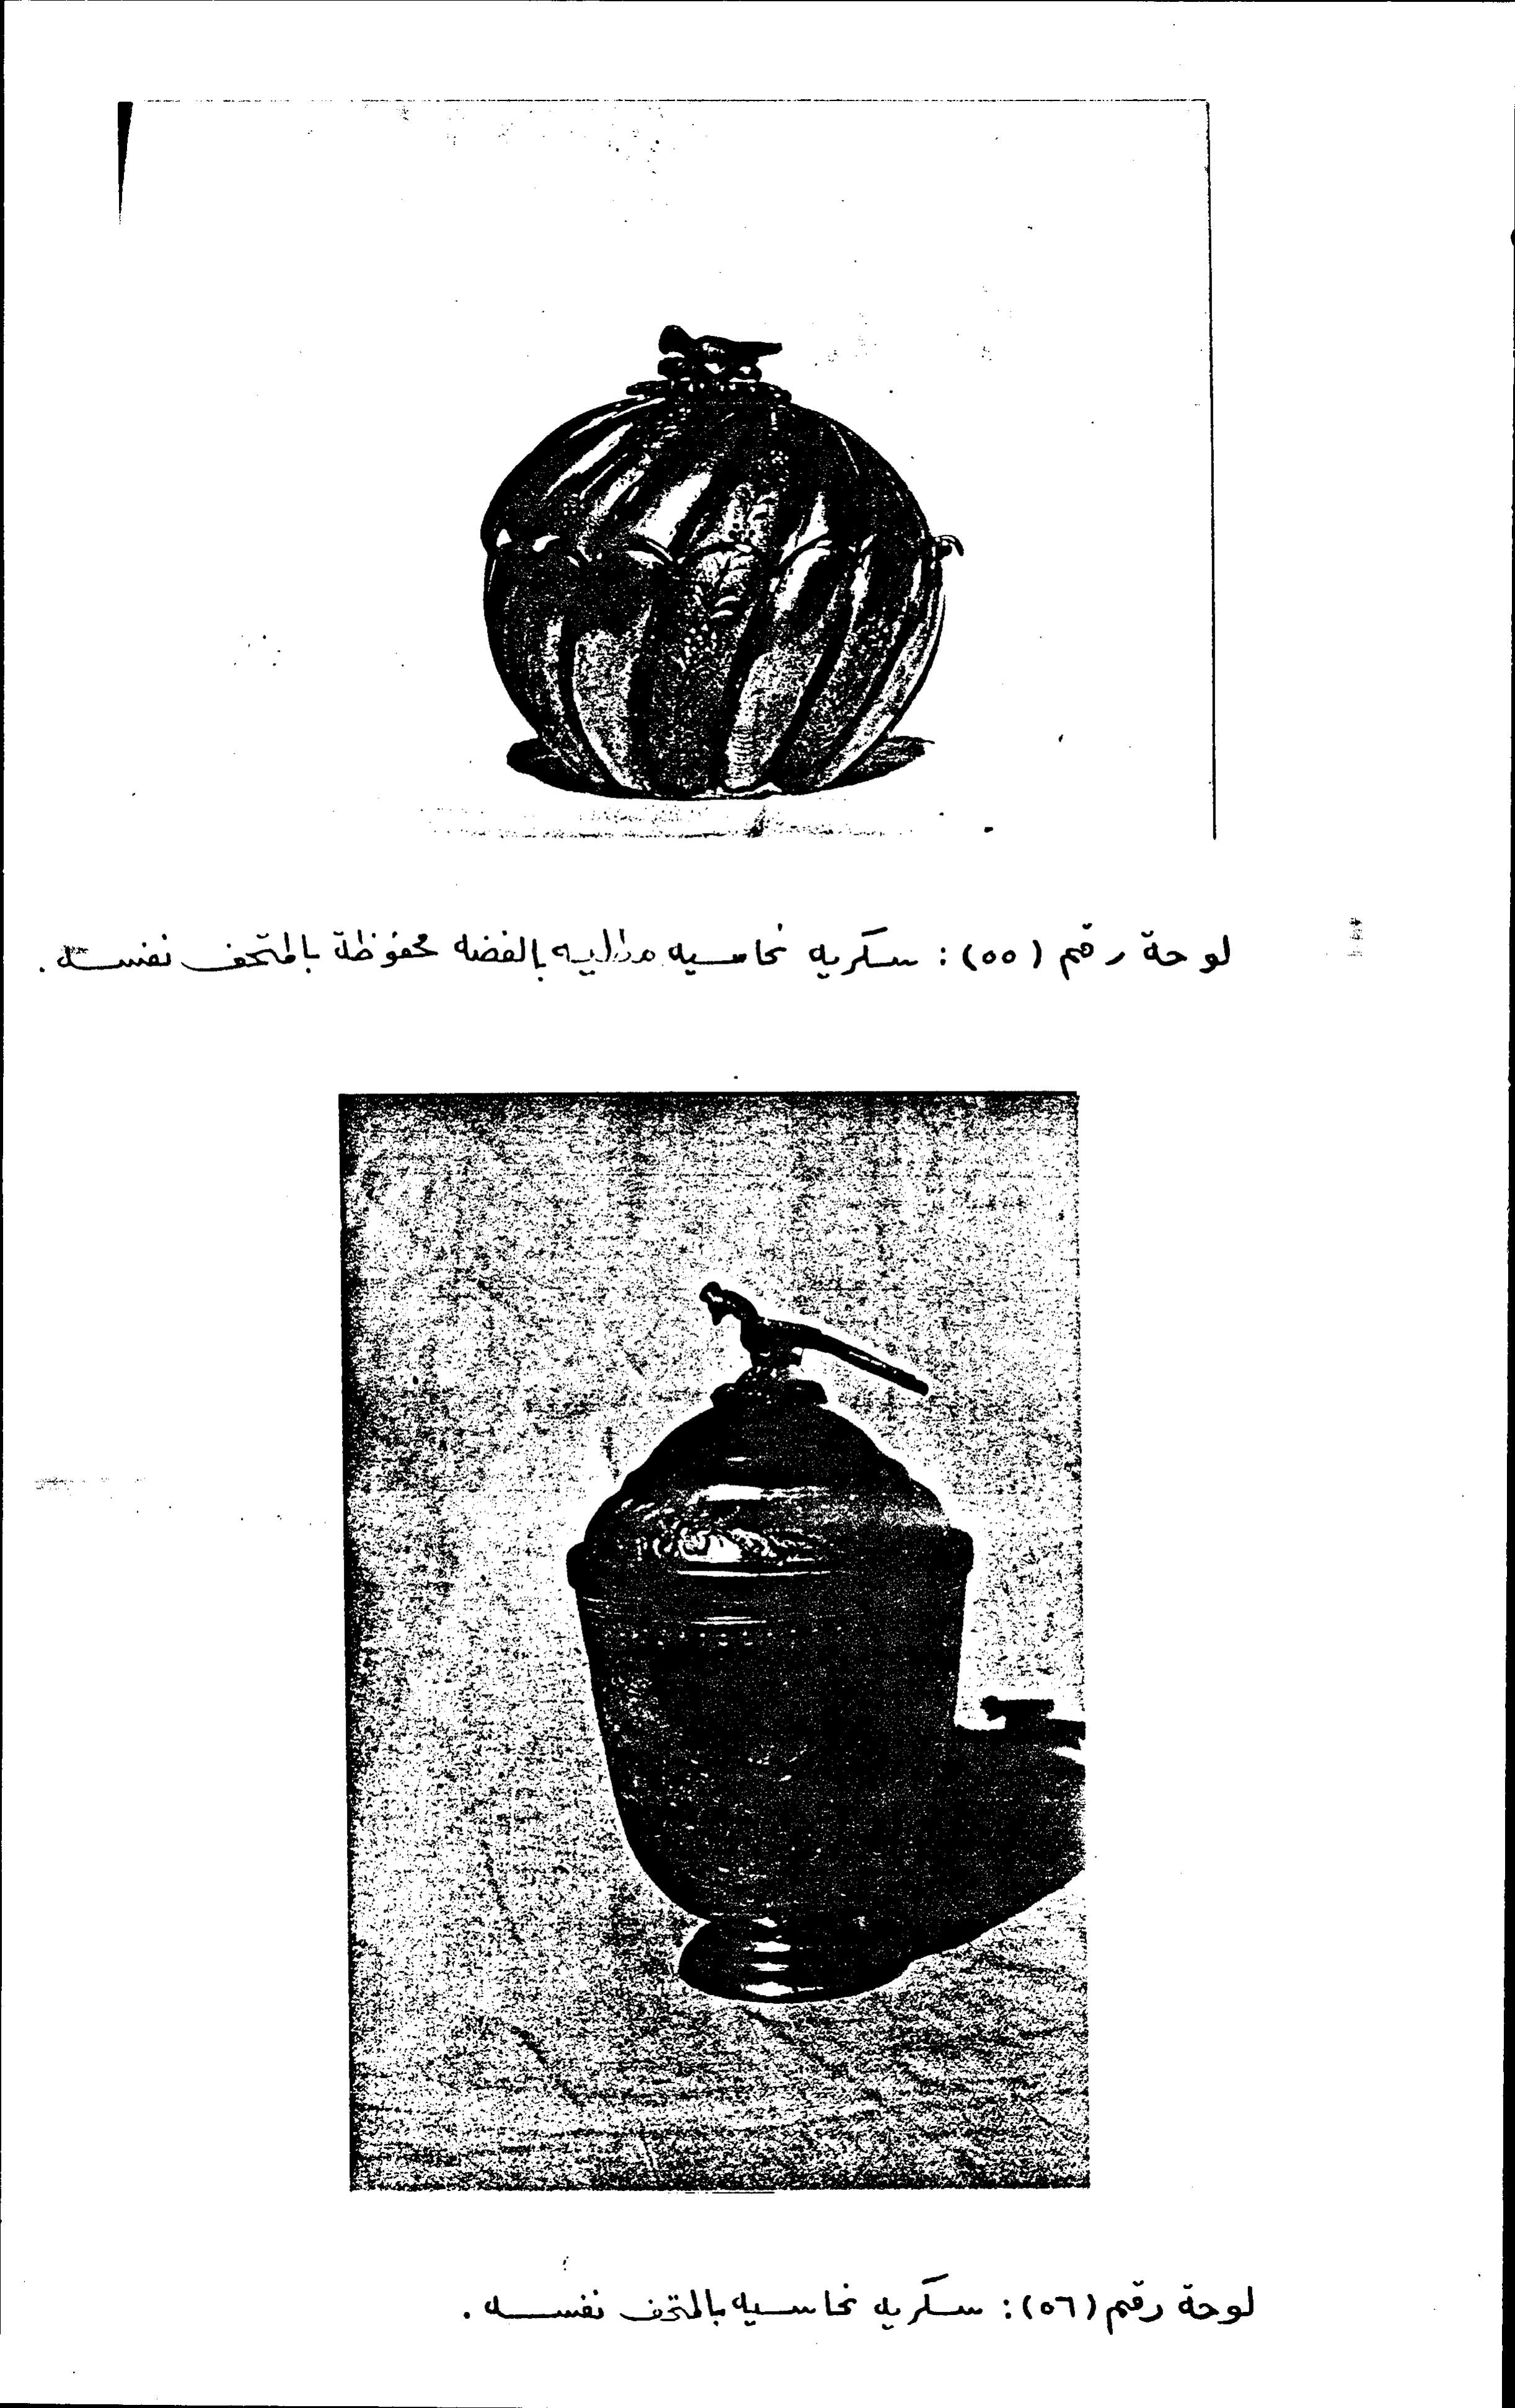 لوحة رقم (٥٥) : سكريه نحاسيه مطليه بالفضه محفوظة بالمتحف نفسه .
لوحة رقم (٥٦) : سكريه نحاسيه بالمتحف نفسه .